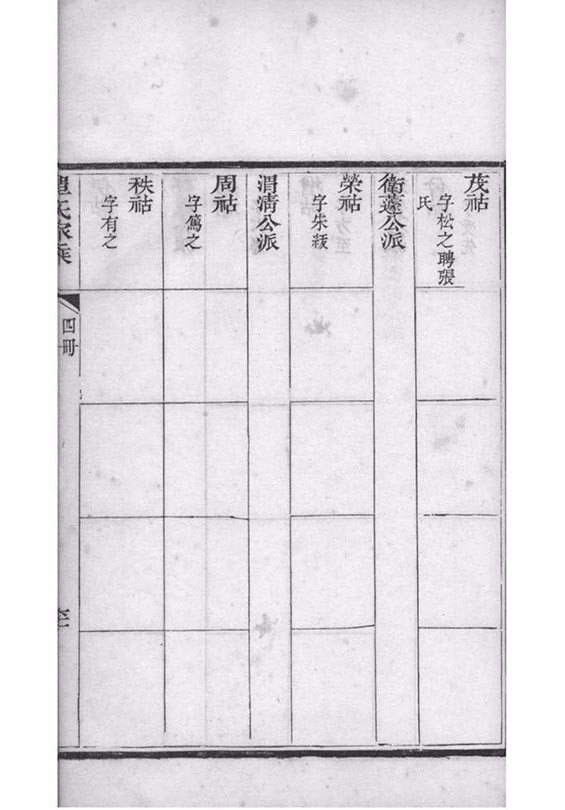 茂祜
字松之聘張
氏
衛蘧公派
榮祜
字朱紱
渭清公派
周祜
字篤之
秩祜
字有之
氏家乘
四冊